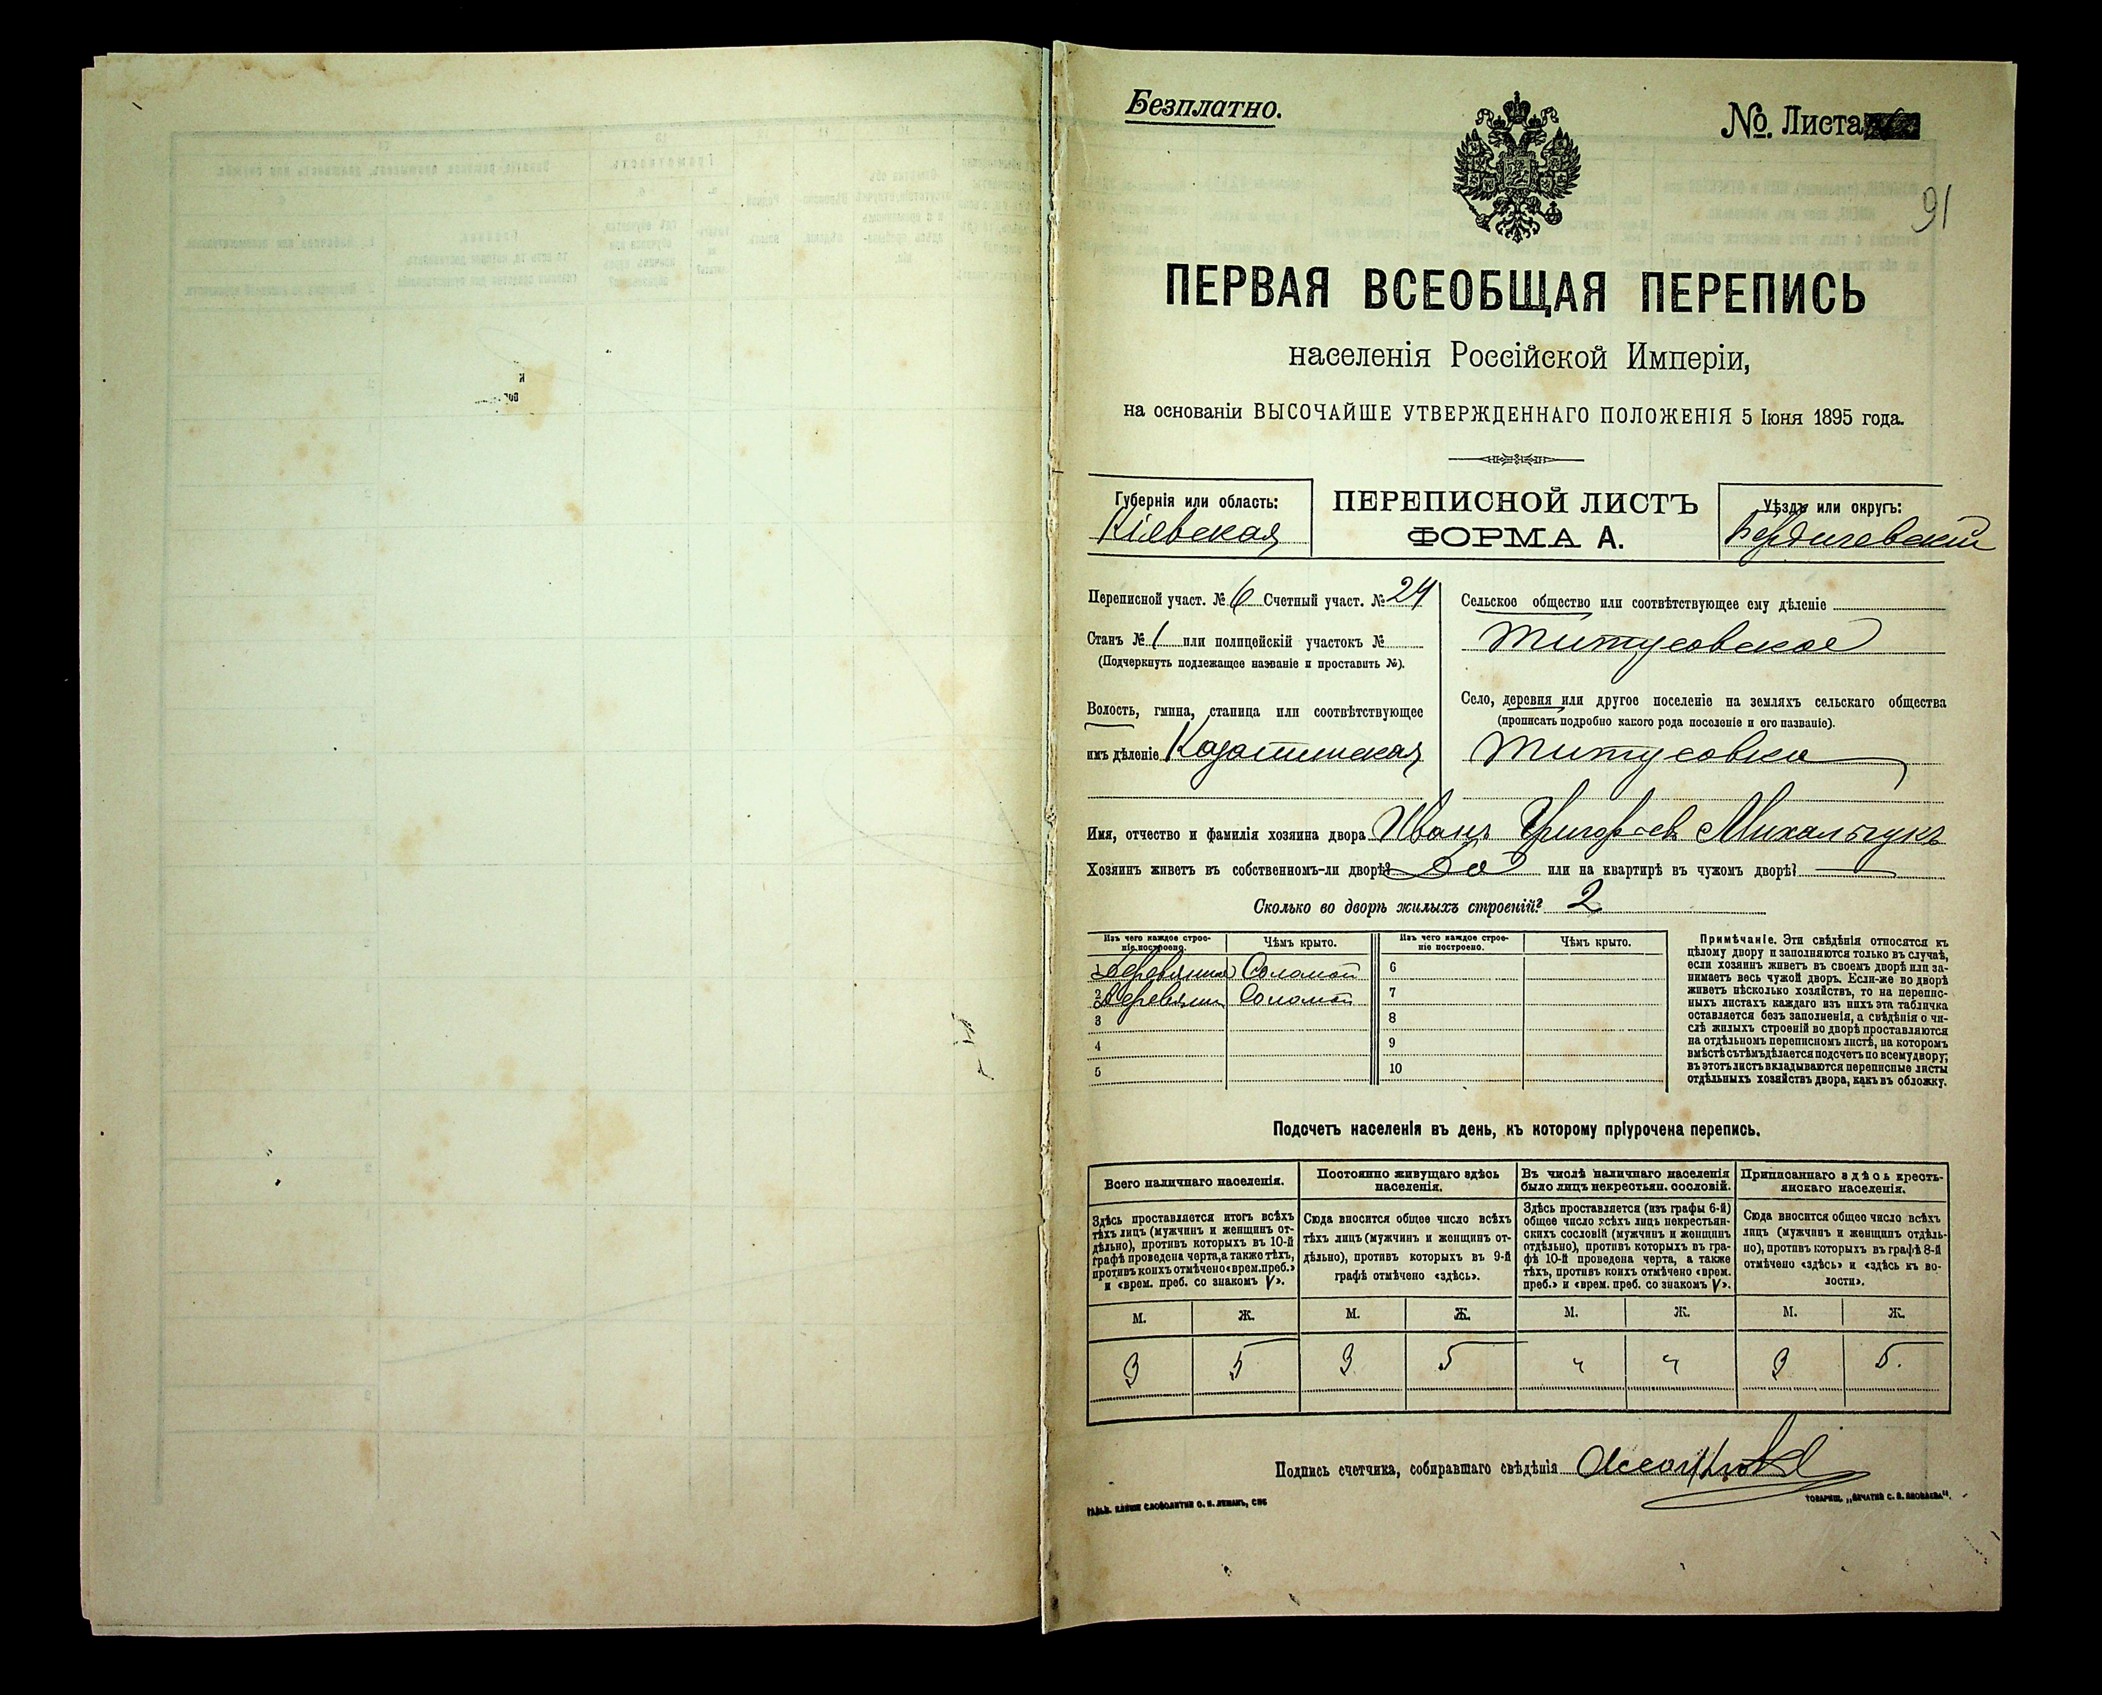 Безплатно.
№. Листа
91
ПЕРВАЯ ВСЕОБЩАЯ ПЕРЕПИСЬ
населенія Россійской Имперіи,
на основаніи ВЫСОЧАЙШЕ УТВЕРЖДЕННАГО ПОЛОЖЕНІЯ 5 Іюня 1895 года.
Губернія или область:
Кіевская
ПЕРЕПИСНОЙ ЛИСТЪ
ФОРМА А.
Уѣздъ или округъ:
Бердичевскій
Переписной участ. № 6 Счетный участ. № 24
Станъ № 1 или полицейскій участокъ №
(Подчеркнуть подлежащее названіе и проставить №).
Волость, гмина, станица или соотвѣтствующее
имъ дѣленіе Казатинская
Сельское общество или соотвѣтствующее ему дѣленіе
Титусовское
Село, деревня или другое поселеніе на земляхъ сельскаго общества
(прописать подробно какого рода поселеніе и его названіе).
Титусовка
Имя, отчество и фамилія хозяина двора Иванъ Григорьев Михальчукъ
Хозяинъ живетъ въ собственномъ-ли дворѣ? Да или на квартирѣ въ чужомъ дворѣ? —
Сколько во дворѣ жилыхъ строеній? 2
Изъ чего каждое строе-
ніе построено.
Чѣмъ крыто.
Изъ чего каждое строе-
ніе построено.
Чѣмъ крыто.
1 Соломой 6
2 Соломой 7
3 8
4 9
5 10
Примѣчаніе. Эти свѣдѣнія относятся къ
цѣлому двору и заполняются только въ случаѣ,
если хозяинъ живетъ въ своемъ дворѣ или за-
нимаетъ весь чужой дворъ. Если-же во дворѣ
живетъ нѣсколько хозяйствъ, то на перепис-
ныхъ листахъ каждаго изъ нихъ эта табличка
оставляется безъ заполненія, а свѣдѣнія о чи-
слѣ жилыхъ строеній во дворѣ проставляются
на отдѣльномъ переписномъ листѣ, на которомъ
вмѣстѣ съ тѣмъ дѣлается подсчетъ по всему двору;
въ этотъ листъ вкладываются переписные листы
отдѣльныхъ хозяйствъ двора, какъ въ обложку.
Подсчетъ населенія въ день, къ которому пріурочена перепись.
Всего наличнаго населенія.
Постоянно живущаго здѣсь
населенія.
Въ числѣ наличнаго населенія
было лицъ некрестьян. сословій.
Приписаннаго здѣсь кресть-
янскаго населенія.
Здѣсь проставляется итогъ всѣхъ
тѣхъ лицъ (мужчинъ и женщинъ от-
дѣльно), противъ которыхъ въ 10-й
графѣ проведена черта, а также тѣхъ,
противъ коихъ отмѣчено «врем. преб.»
и «врем. преб. со знакомъ V».
Сюда вносится общее число всѣхъ
тѣхъ лицъ (мужчинъ и женщинъ от-
дѣльно), противъ которыхъ въ 9-й
графѣ отмѣчено «здѣсь».
Здѣсь проставляется (изъ графы 6-й)
общее число всѣхъ лицъ некрестьян-
скихъ сословій (мужчинъ и женщинъ
отдѣльно), противъ которыхъ въ гра-
фѣ 10-й проведена черта, а также
тѣхъ, противъ коихъ отмѣчено «врем.
преб.» и «врем. преб. со знакомъ V».
Сюда вносится общее число всѣхъ
лицъ (мужчинъ и женщинъ отдѣль-
но), противъ которыхъ въ графѣ 8-й
отмѣчено «здѣсь» и «здѣсь къ во-
лости».
М. Ж. М. Ж. М. Ж. М. Ж.
3 5 3 5 " " 3 5.
Подпись счетчика, собиравшаго свѣдѣнія